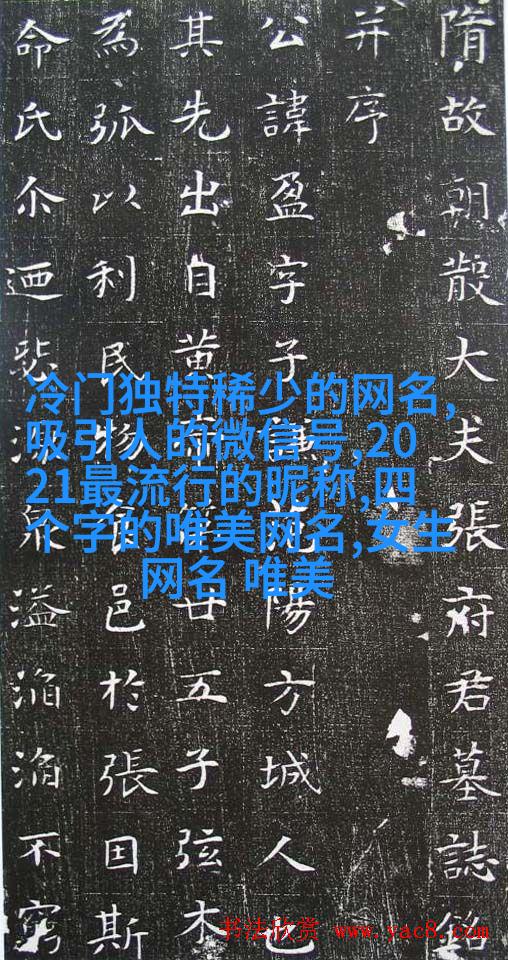 隋故朝散大夫張府君墓誌銘
并序
公諱盈字子陽方城人也
其先出自黄帝廿五子弦木
為弧以利民物食邑於張因斯
命氏尒迺泉溢滔滔不窮
冷门独特稀少的网名,
吸引人的微信号,20
21最流行的昵称,四
个字的唯美网名,女生
网名 唯美
书法欣赏 www.yac8.com